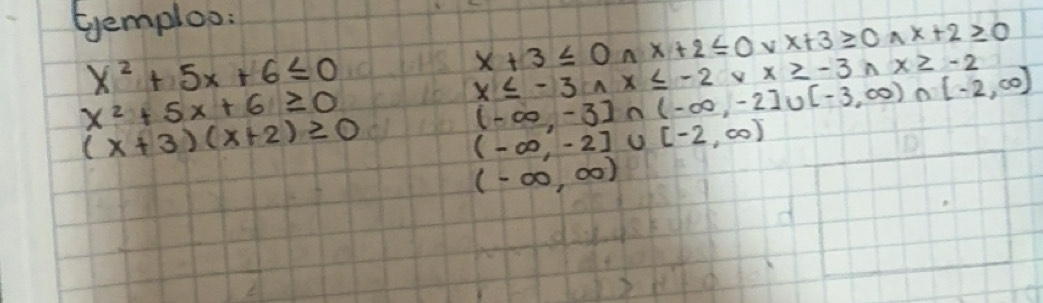 Ejemplos:
x² + 5x + 6 ≤ 0
x² + 5x + 6 ≥ 0
(x + 3)(x + 2) ≥ 0
x + 3 ≤ 0 ∧ x + 2 ≤ 0 ∨ x + 3 ≥ 0 ∧ x + 2 ≥ 0
x ≤ -3 ∧ x ≤ -2 ∨ x ≥ -3 ∧ x ≥ -2
(-∞, -3] ∩ (-∞, -2] ∪ [-3, ∞) ∩ [-2, ∞)
(-∞, -2] ∪ [-2, ∞)
(-∞, ∞)